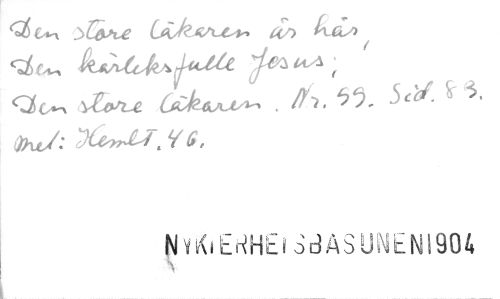 Den store läkaren är här,
Den kärleksfulle Jesus;
Den store läkaren. Nr. 99. Sid. 83.
mel: HemlT. 46.
NYKTERHETSBASUNEN1904